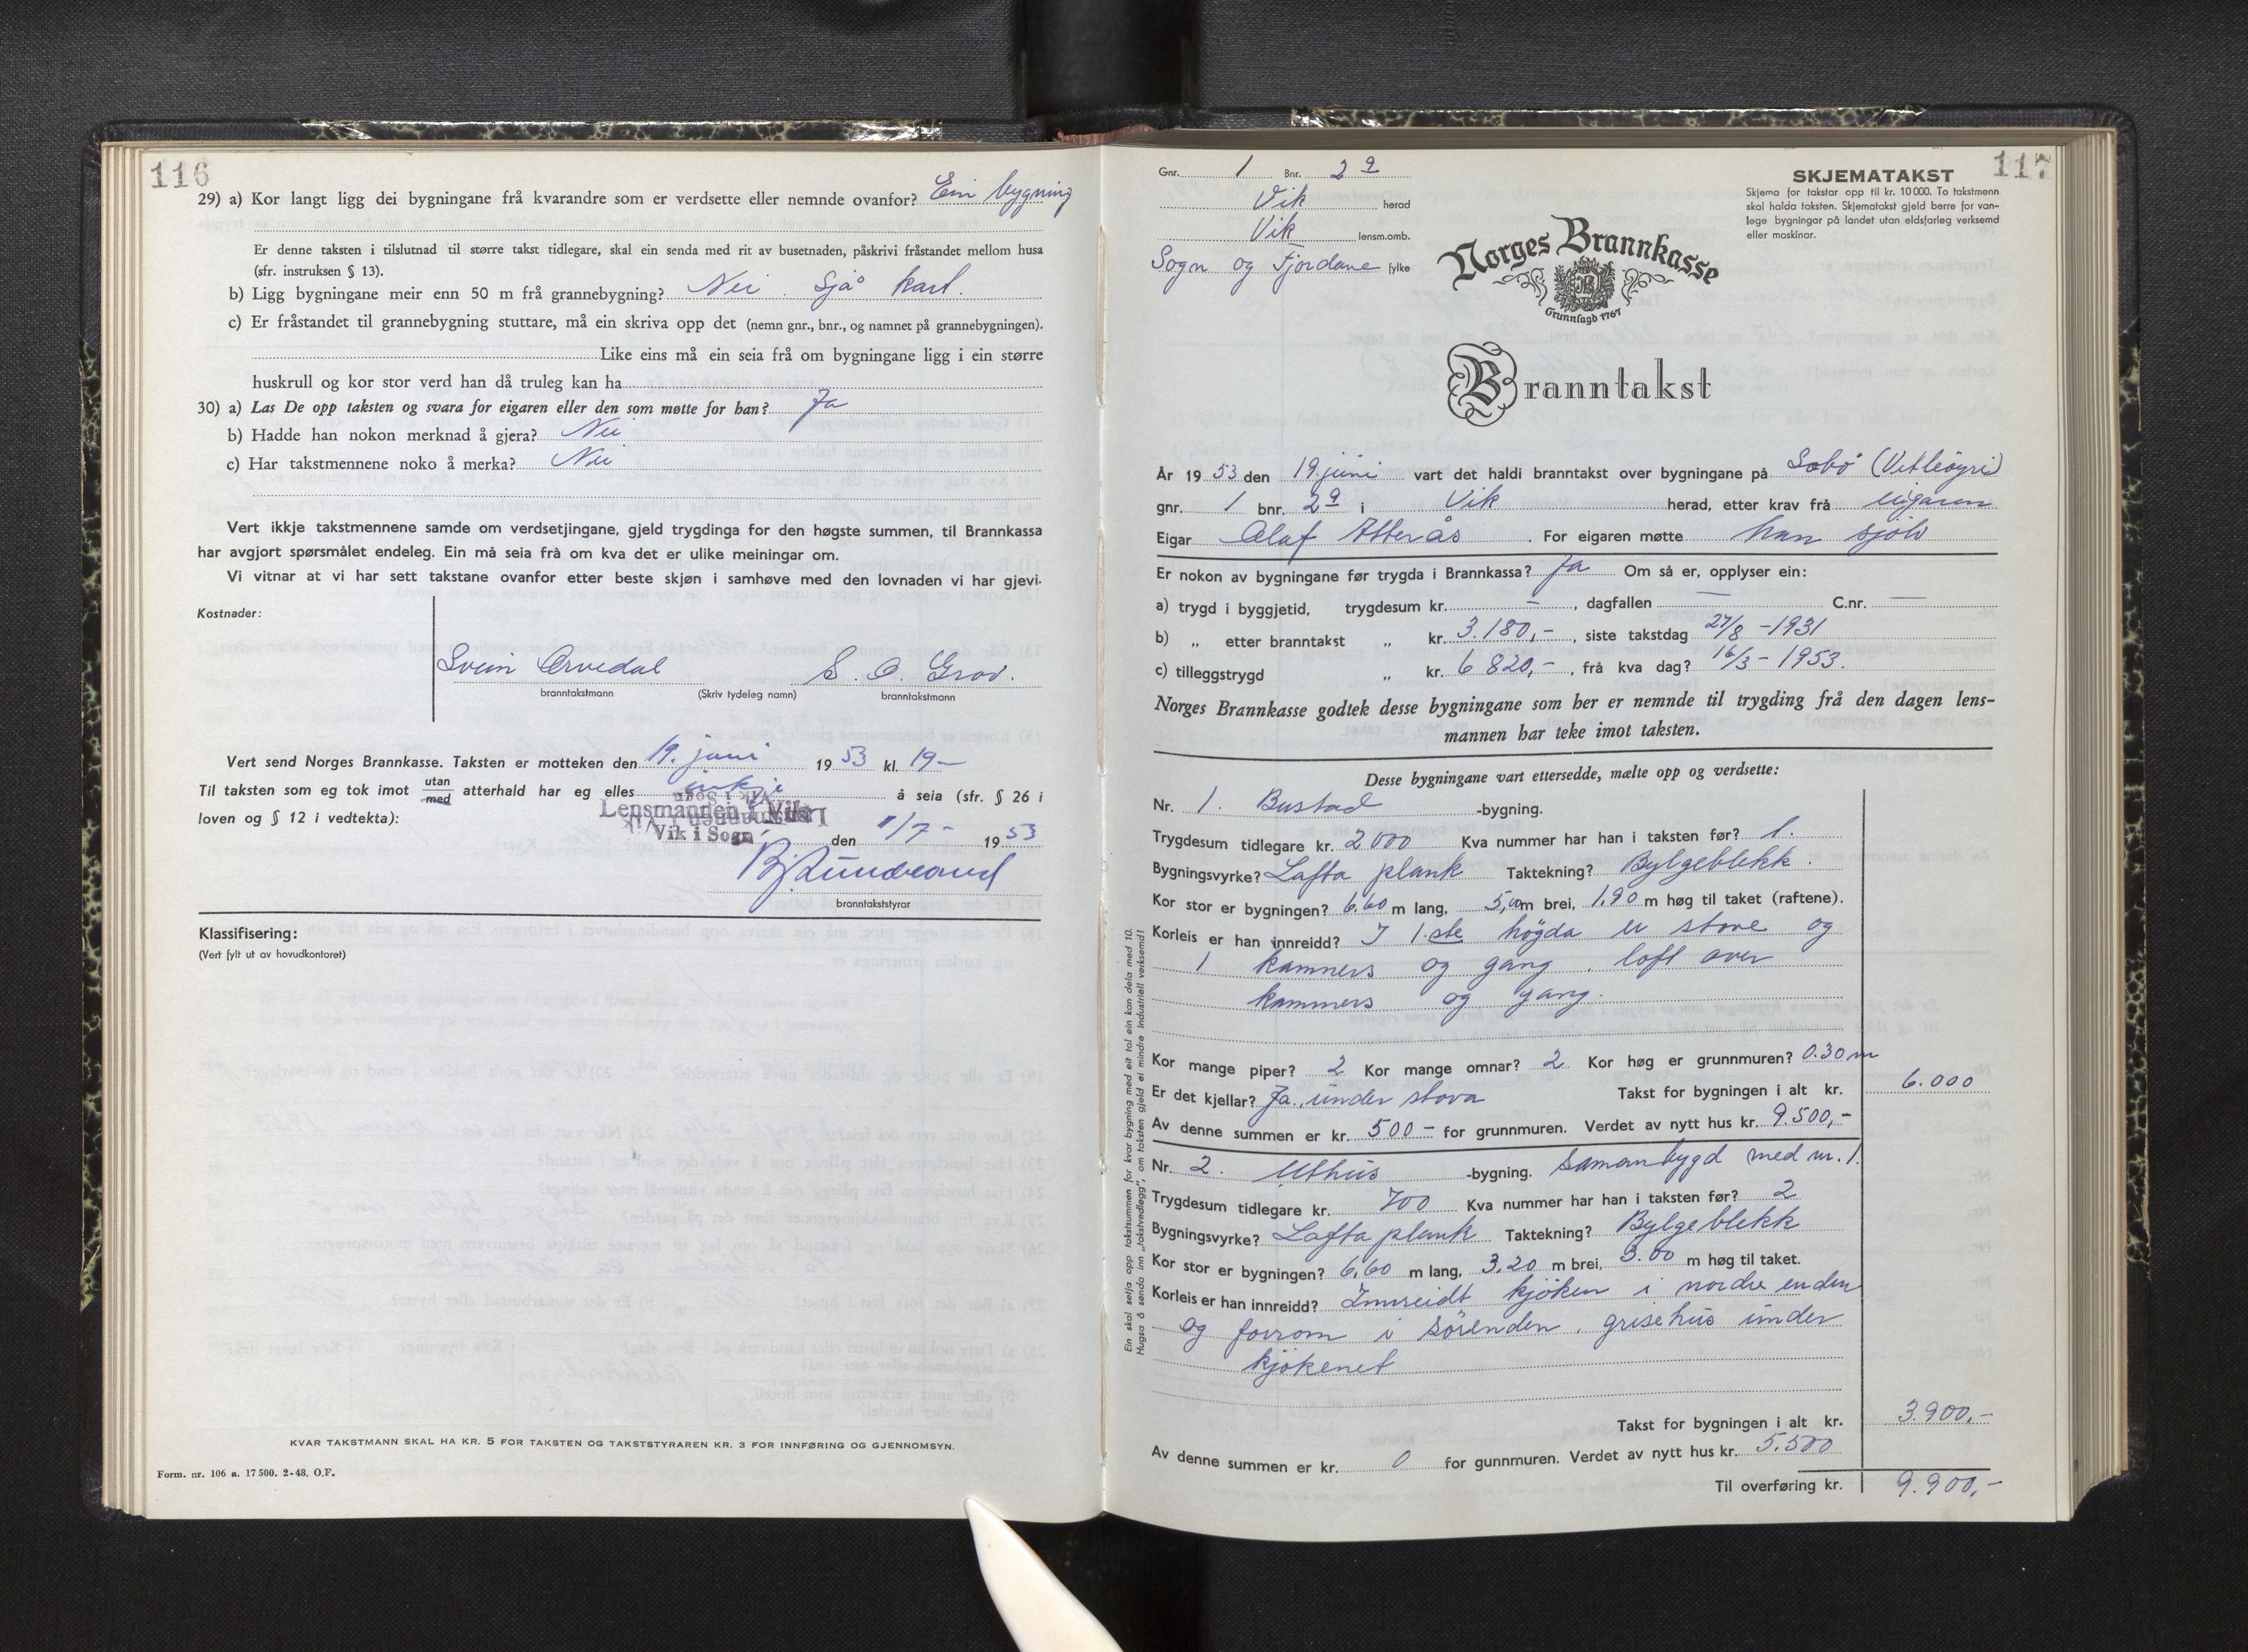 116
29) a) Kor langt ligg dei bygningane frå kvarandre som er verdsette eller nemnde ovanfor? Ein bygning
Er denne taksten i tilslutnad til større takst tidlegare, skal ein senda med rit av busetnaden, påskrivi fråstandet mellom husa
(sfr. instruksen § 13).
b) Ligg bygningane meir enn 50 m frå grannebygning? Nei. Sjå kart.
c) Er fråstandet til grannebygning stuttare, må ein skriva opp det (nemn gnr., bnr., og namnet på grannebygningen).
Like eins må ein seia frå om bygningane ligg i ein større
huskrull og kor stor verd han då truleg kan ha
30) a) Las De opp taksten og svara for eigaren eller den som møtte for han? Ja
b) Hadde han nokon merknad å gjera? Nei
c) Har takstmennene noko å merka? Nei
Vert ikkje takstmennene samde om verdsetjingane, gjeld trygdinga for den høgste summen, til Brannkassa
har avgjort spørsmålet endeleg. Ein må seia frå om kva det er ulike meiningar om.
Vi vitnar at vi har sett takstane ovanfor etter beste skjøn i samhøve med den lovnaden vi har gjevi.
Kostnader:
Svein Orvedal S. O. Grov.
branntakstmann (Skriv tydeleg namn) branntakstmann
Vert send Norges Brannkasse. Taksten er motteken den 19. juni 1953 kl. 19–
Til taksten som eg tok imot utan med atterhald har eg elles inkje å seia (sfr. § 26 i
loven og § 12 i vedtekta):
Lensmannen i Vik
Vik i Sogn den 1/7 – 1953
branntakststyrar
Klassifisering:
(Vert fylt ut av hovudkontoret)
KVAR TAKSTMANN SKAL HA KR. 5 FOR TAKSTEN OG TAKSTSTYRAREN KR. 3 FOR INNFØRING OG GJENNOMSYN.
Form. nr. 106 a. 17 500. 2-48. O.F.
117
Gnr. 1 Bnr. 2 a
Vik herad
Vik lensm.omb.
Sogn og Fjordane fylke
SKJEMATAKST
Skjema for takstar opp til kr. 10 000. To takstmenn
skal halda taksten. Skjematakst gjeld berre for van-
lege bygningar på landet utan eldsfarleg verksemd
eller maskinar.
Norges Brannkasse
Grunnlagd 1767
Branntakst
År 1953 den 19. juni vart det haldi branntakst over bygningane på Sæbø (Vetleøyri)
gnr. 1 bnr. 2 a i Vik herad, etter krav frå eigaren
Eigar Olaf Atterås. For eigaren møtte han sjølv
Er nokon av bygningane før trygda i Brannkassa? Ja Om så er, opplyser ein:
a) trygd i byggjetid, trygdesum kr. – , dagfallen — C.nr. —
b) „ etter branntakst „ kr. 3.180,- , siste takstdag 27/8 -1931
c) tilleggstrygd „ kr. 6 820,- , frå kva dag? 16/3 - 1953.
Norges Brannkasse godtek desse bygningane som her er nemnde til trygding frå den dagen lens-
mannen har teke imot taksten.
Desse bygningane vart ettersedde, mælte opp og verdsette:
Nr. 1. Bustad -bygning.
Trygdesum tidlegare kr. 2000 Kva nummer har han i taksten før? 1.
Bygningsvyrke? Lafta plank Taktekning? Bylgeblekk.
Kor stor er bygningen? 6,60 m lang, 5,00 m brei, 1,90 m høg til taket (raftene).
Korleis er han innreidd? I 1.ste høgda er stove og
1 kammers og gang. loft over
kammers og gang.
Kor mange piper? 2 Kor mange omnar? 2 Kor høg er grunnmuren? 0.30 m
Er det kjellar? Ja, under stova Takst for bygningen i alt kr. 6.000
Av denne summen er kr. 500 – for grunnmuren. Verdet av nytt hus kr. 9.500,-
Nr. 2. Uthus -bygning. Samanbygd med nr. 1.
Trygdesum tidlegare kr. 700 Kva nummer har han i taksten før? 2
Bygningsvyrke? Lafta plank Taktekning? Bylgeblekk
Kor stor er bygningen? 6,60 m lang, 3,20 m brei, 3.00 m høg til taket.
Korleis er han innreidd? Innreidt kjøken i nordre enden
og forrom i sørenden. grisehus under
kjøkenet
Takst for bygningen i alt kr. 3.900,-
Av denne summen er kr. 0 for gunnmuren. Verdet av nytt hus kr. 5.500
Til overføring kr. 9.900,-
Ein skal setja opp takstsummen for kvar bygning med eit tal ein kan dela med 10.
Hugsa å senda inn „takstvedlegg", om taksten gjeld ei mindre industriell verksemd!